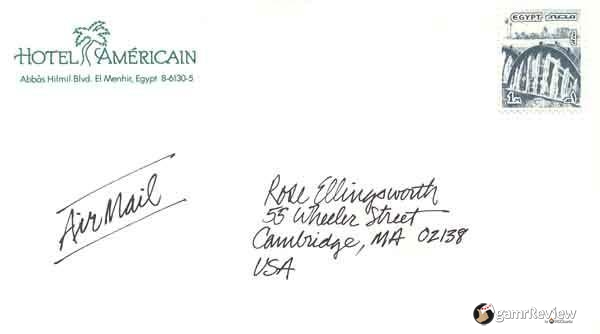 HOTEL AMÉRICAIN
Abbàs Hilmil Blvd. El Menhir, Egypt 8-6130-5
EGYPT مصر
1M
Air Mail
Rose Ellingsworth
55 Wheeler Street
Cambridge, MA 02138
USA
gamrReview